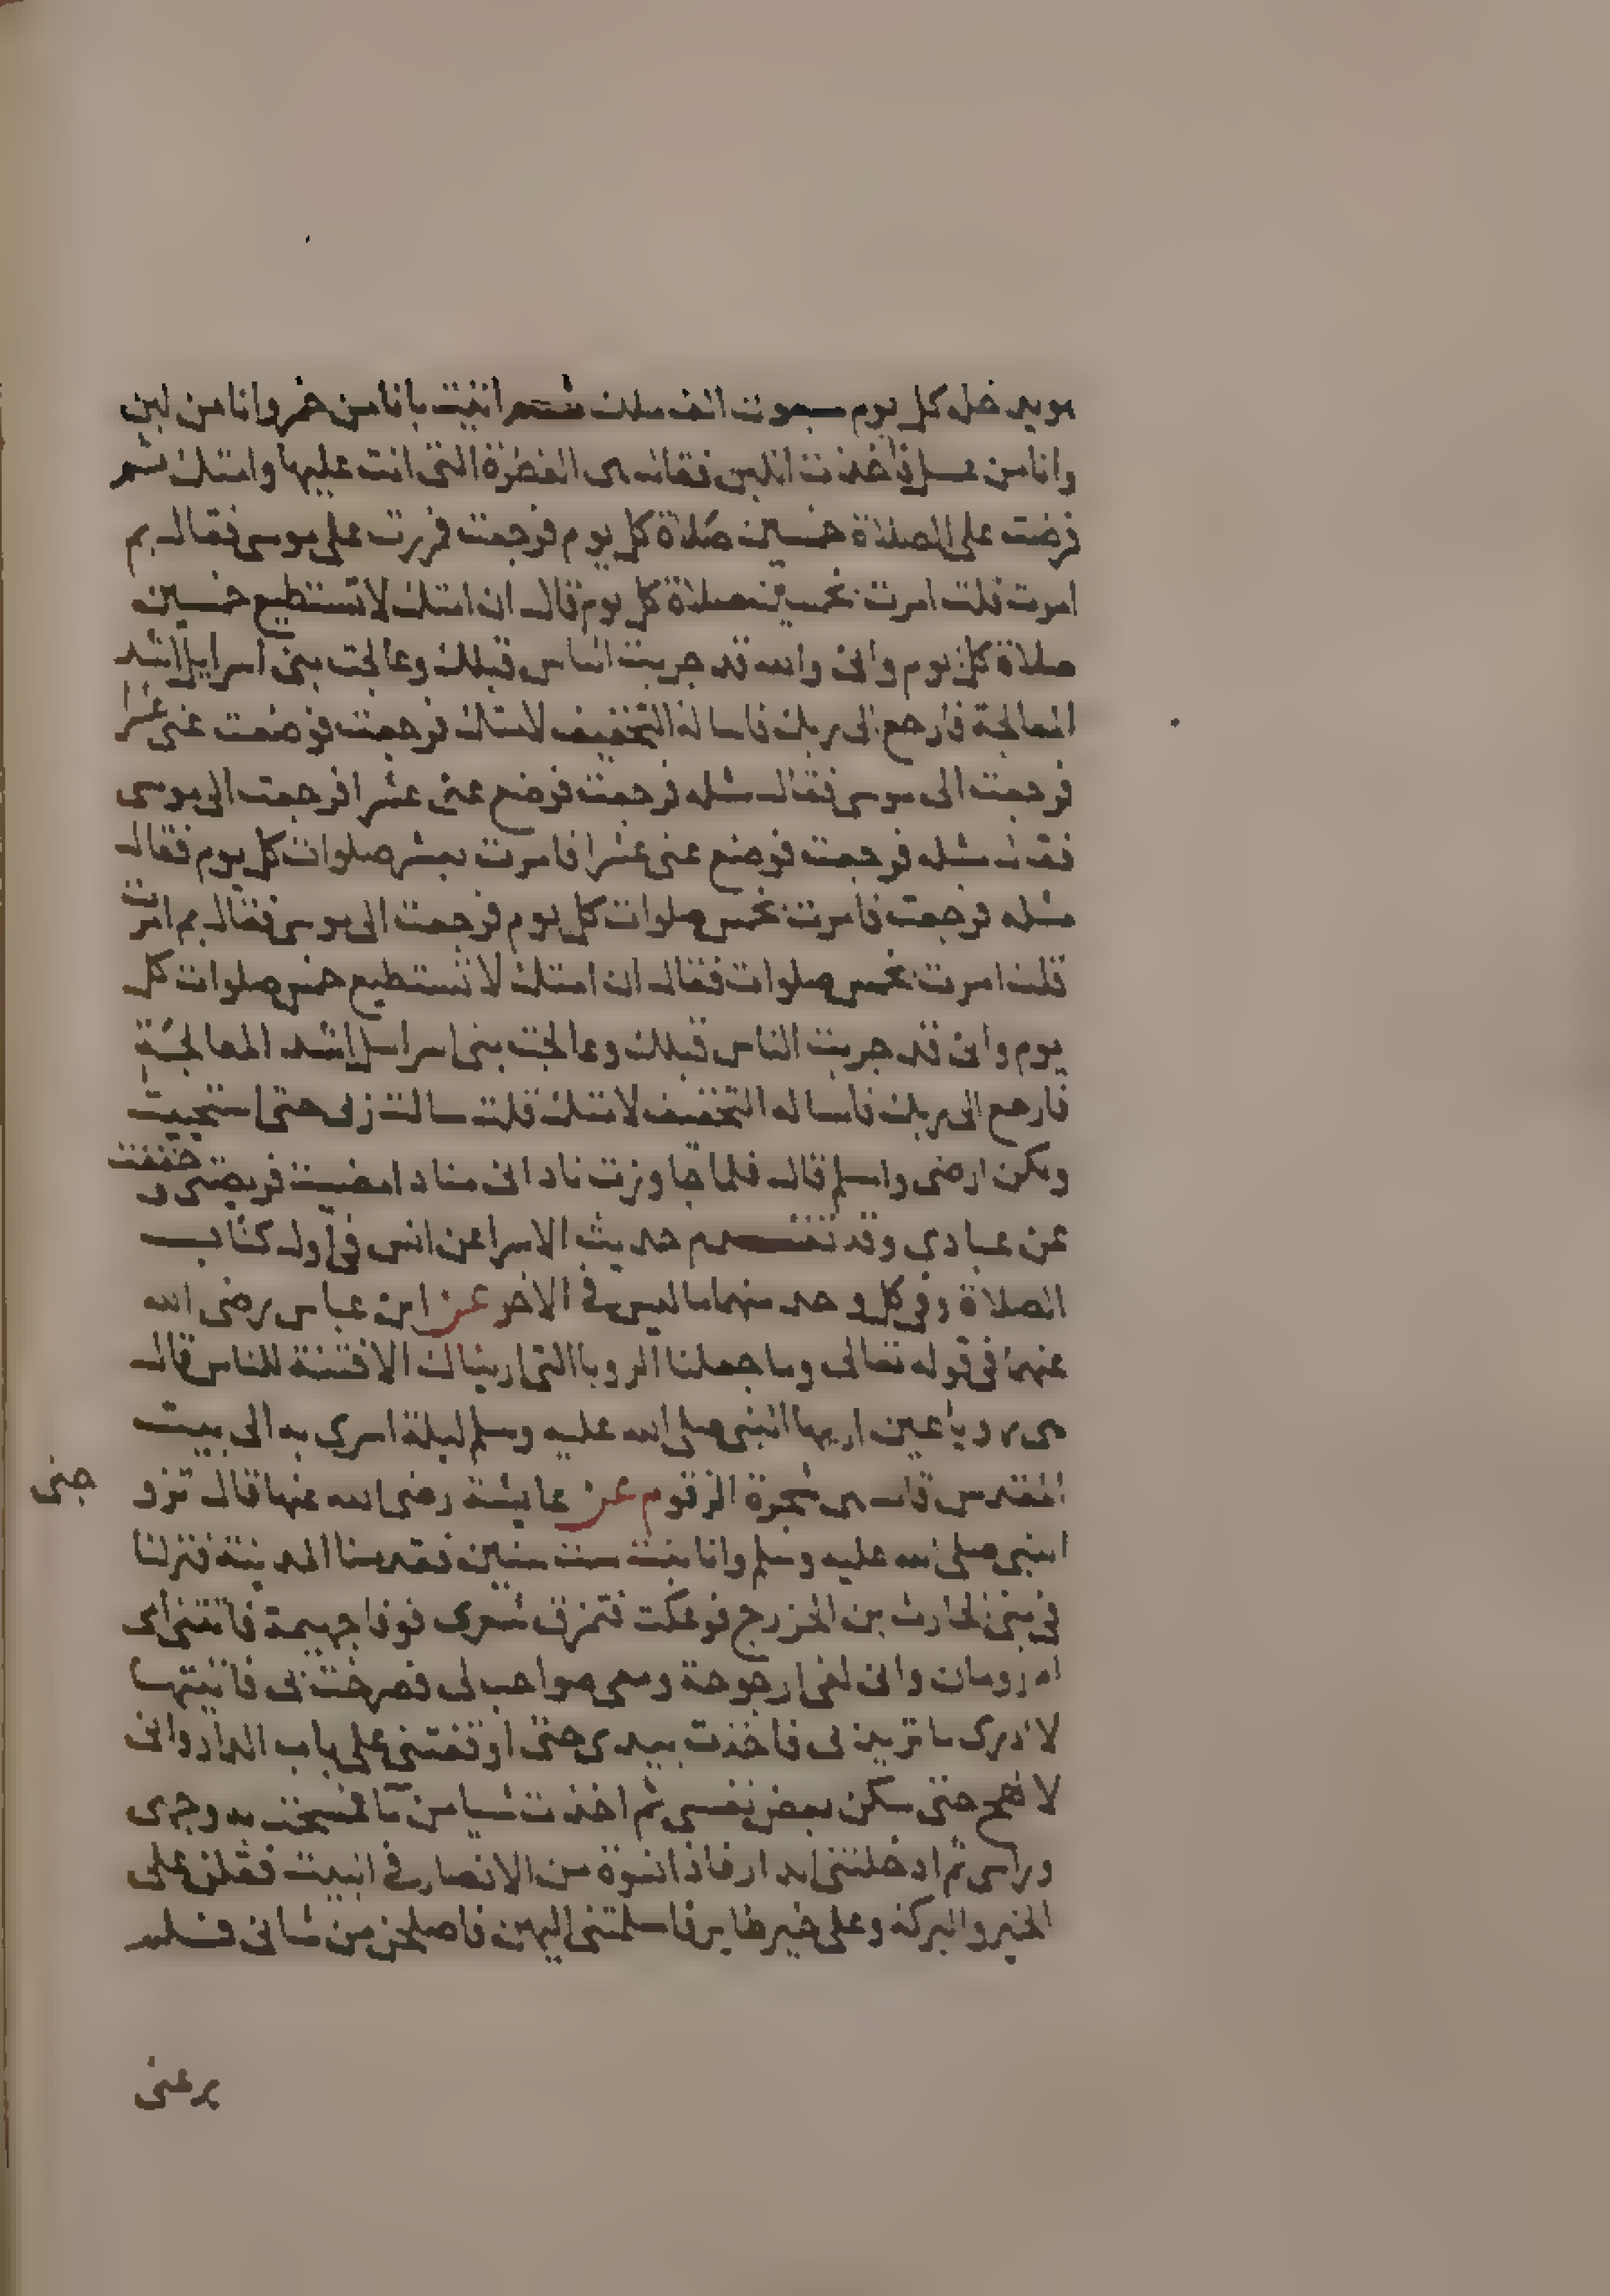 هو يدخل كل يوم سبعون الف ملك ثم اتيت باناء من خمر وانا من لبن
وانا من عسل فاخذت اللبن فقال هى الفطرة التى انت عليها وامتك ثم
فرضت على الصلاة خمسين صلاة كل يوم فرجعت فمررت على موسى فقال بم
امرت قلت امرت بخمسين صلاة كل يوم قال ان امتك لا تستطيع خمسين
صلاة كل يوم وانى والله قد جربت الناس قبلك وعالجت بنى اسرايل اشد
المعالجة فارجع الى ربك فاساله التخفيف لامتك فرجعت فوضعت عنى عشرا
فرجعت الى موسى فقال مثله فرجعت فوضع عنى عشرا فرجعت الى موسى
فقال مثله فرجعت فوضع عنى عشرا فامرت بعشر صلوات كل يوم فقال
مثله فرجعت فامرت بخمس صلوات كل يوم فرجعت الى موسى فقال بم امرت
قلت امرت بخمس صلوات فقال ان امتك لا تستطيع خمس صلوات كل
يوم وانى قد جربت الناس قبلك وعالجت بنى اسرايل اشد المعالجة
فارجع الى ربك فاساله التخفيف لامتك قلت سالت ربى حتى استحييت
ولكن ارضى واسلم قال فلما جاوزت نادانى مناد امضيت فريضتى وخففت
عن عبادى وقد تقدم حديث الاسرا عن انس فى اول كتاب
الصلاة وفى كل وحد منهما ما ليس فى الاخر عن ابن عباس رضى الله
عنهما فى قوله تعالى وما جعلنا الرويا التى اريناك الا فتنة للناس قال
هى رويا عين اريها النبى صلى الله عليه وسلم ليلة اسرى به الى بيت
المقدس قال هى شجرة الزقوم عن عايشة رضى الله عنها قال تزو
جنى
النبى صلى الله عليه وسلم وانا بنت ست سنين فقدمنا المدينة فنزلنا
فى بنى الحارث بن الخزرج فوعكت فتمزق شعرى فوفا جميمة فاتتنى امى
ام رومان وانى لفى ارجوحة ومعى صواحب لى فصرخت بى فاتيتها
لا ادرى ما تريد بى فاخذت بيدى حتى اوقفتنى على باب الدار وانى
لا نهج حتى سكن بعض نفسى ثم اخذت شيا من ما فمسحت به وجهى
وراسى ثم ادخلتنى الدار فاذا نسوة من الانصار فى البيت فقلن على
الخير والبركة وعلى خير طاير فاسلمتنى اليهن فاصلحن من شانى فلم
يرعنى